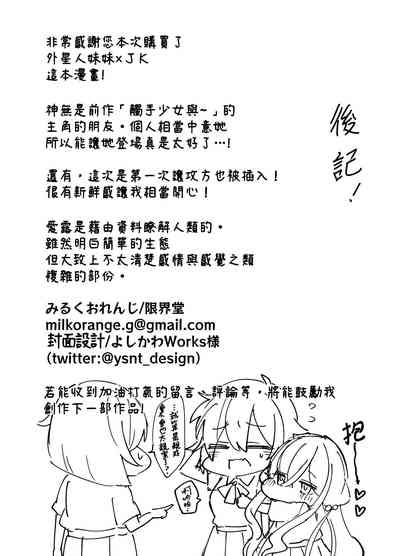 後記！
非常感謝您本次購買了
外星人妹妹xJK
這本漫畫!
神無是前作「觸手少女與~」的
主角的朋友。個人相當中意她
所以能讓她登場真是太好了…!
還有，這次是第一次讓攻方也被插入！
很有新鮮感讓我相當開心！
愛露是藉由資料瞭解人類的。
雖然明白簡單的生態
但大致上不太清楚感情與感覺之類
複雜的部份。
みるくおれんじ/限界堂
milkorange.g@gmail.com
封面設計/よしかわWorks様
(twitter:@ysnt_design)
若能收到加油打氣的留言、評論等，將能鼓勵我
創作下一部作品!
??
抱～♡♡